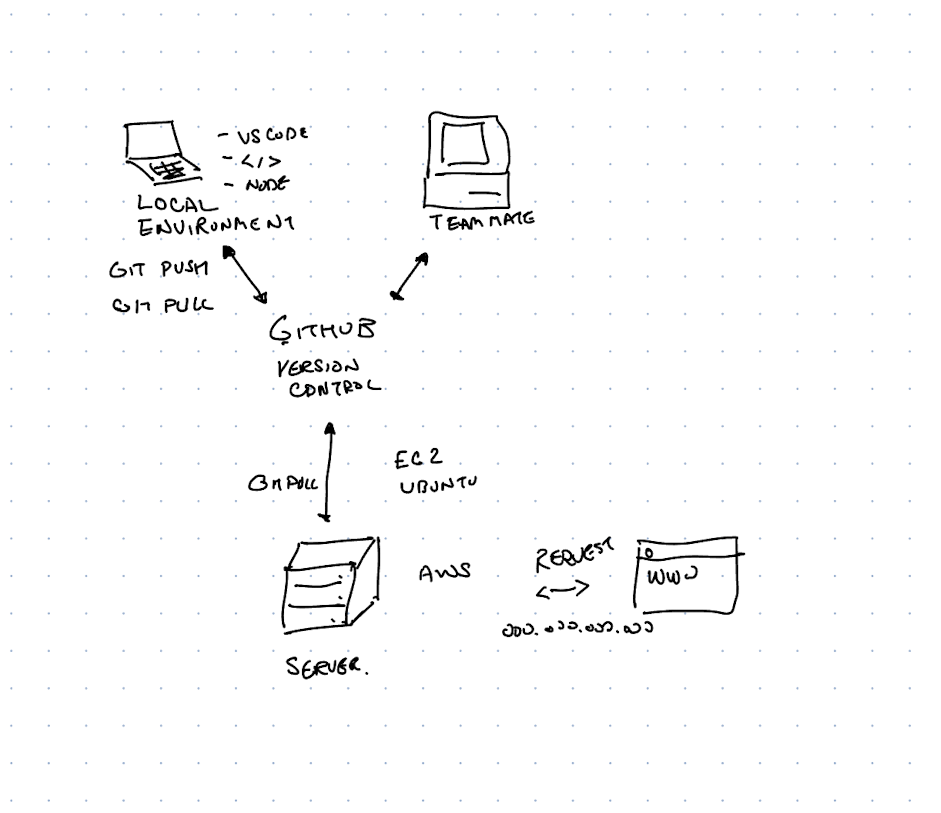 - VSCODE
- </>
- NODE
LOCAL
ENVIRONMENT
TEAMMATE
GIT PUSH
GIT PULL
GITHUB
VERSION
CONTROL
GIT PULL
EC2
UBUNTU
AWS
REQUEST
WWW
000.000.000.000
SERVER.